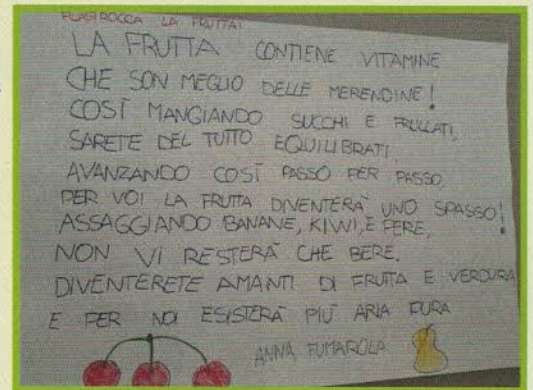 FILASTROCCA LA FRUTTA!
LA FRUTTA CONTIENE VITAMINE
CHE SON MEGLIO DELLE MERENDINE!
COSÌ MANGIANDO SUCCHI E FRULLATI,
SARETE DEL TUTTO EQUILIBRATI.
AVANZANDO COSÌ PASSO PER PASSO,
PER VOI LA FRUTTA DIVENTERÀ UNO SPASSO!
ASSAGGIANDO BANANE, KIWI, E PERE,
NON VI RESTERÀ CHE BERE.
DIVENTERETE AMANTI DI FRUTTA E VERDURA
E PER NOI ESISTERÀ PIÙ ARIA PURA
ANNA FUMAROLA